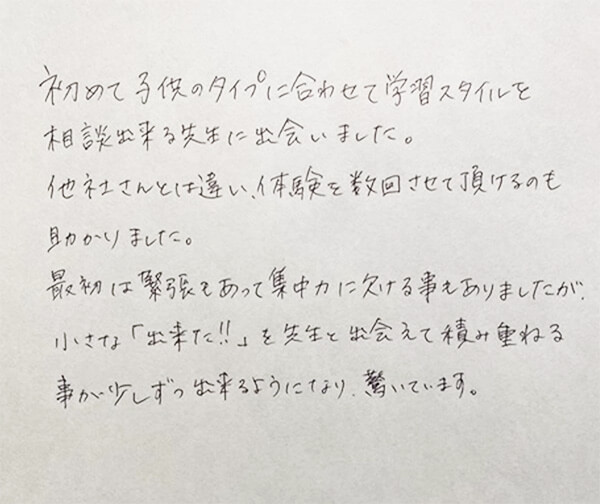 初めて子供のタイプに合わせて学習スタイルを
相談出来る先生に出会いました。
他社さんとは違い、体験を数回させて頂けるのも
助かりました。
最初は緊張もあって集中力に欠ける事もありましたが、
小さな「出来た!!」を先生と出会えて積み重ねる
事が少しずつ出来るようになり、驚いています。